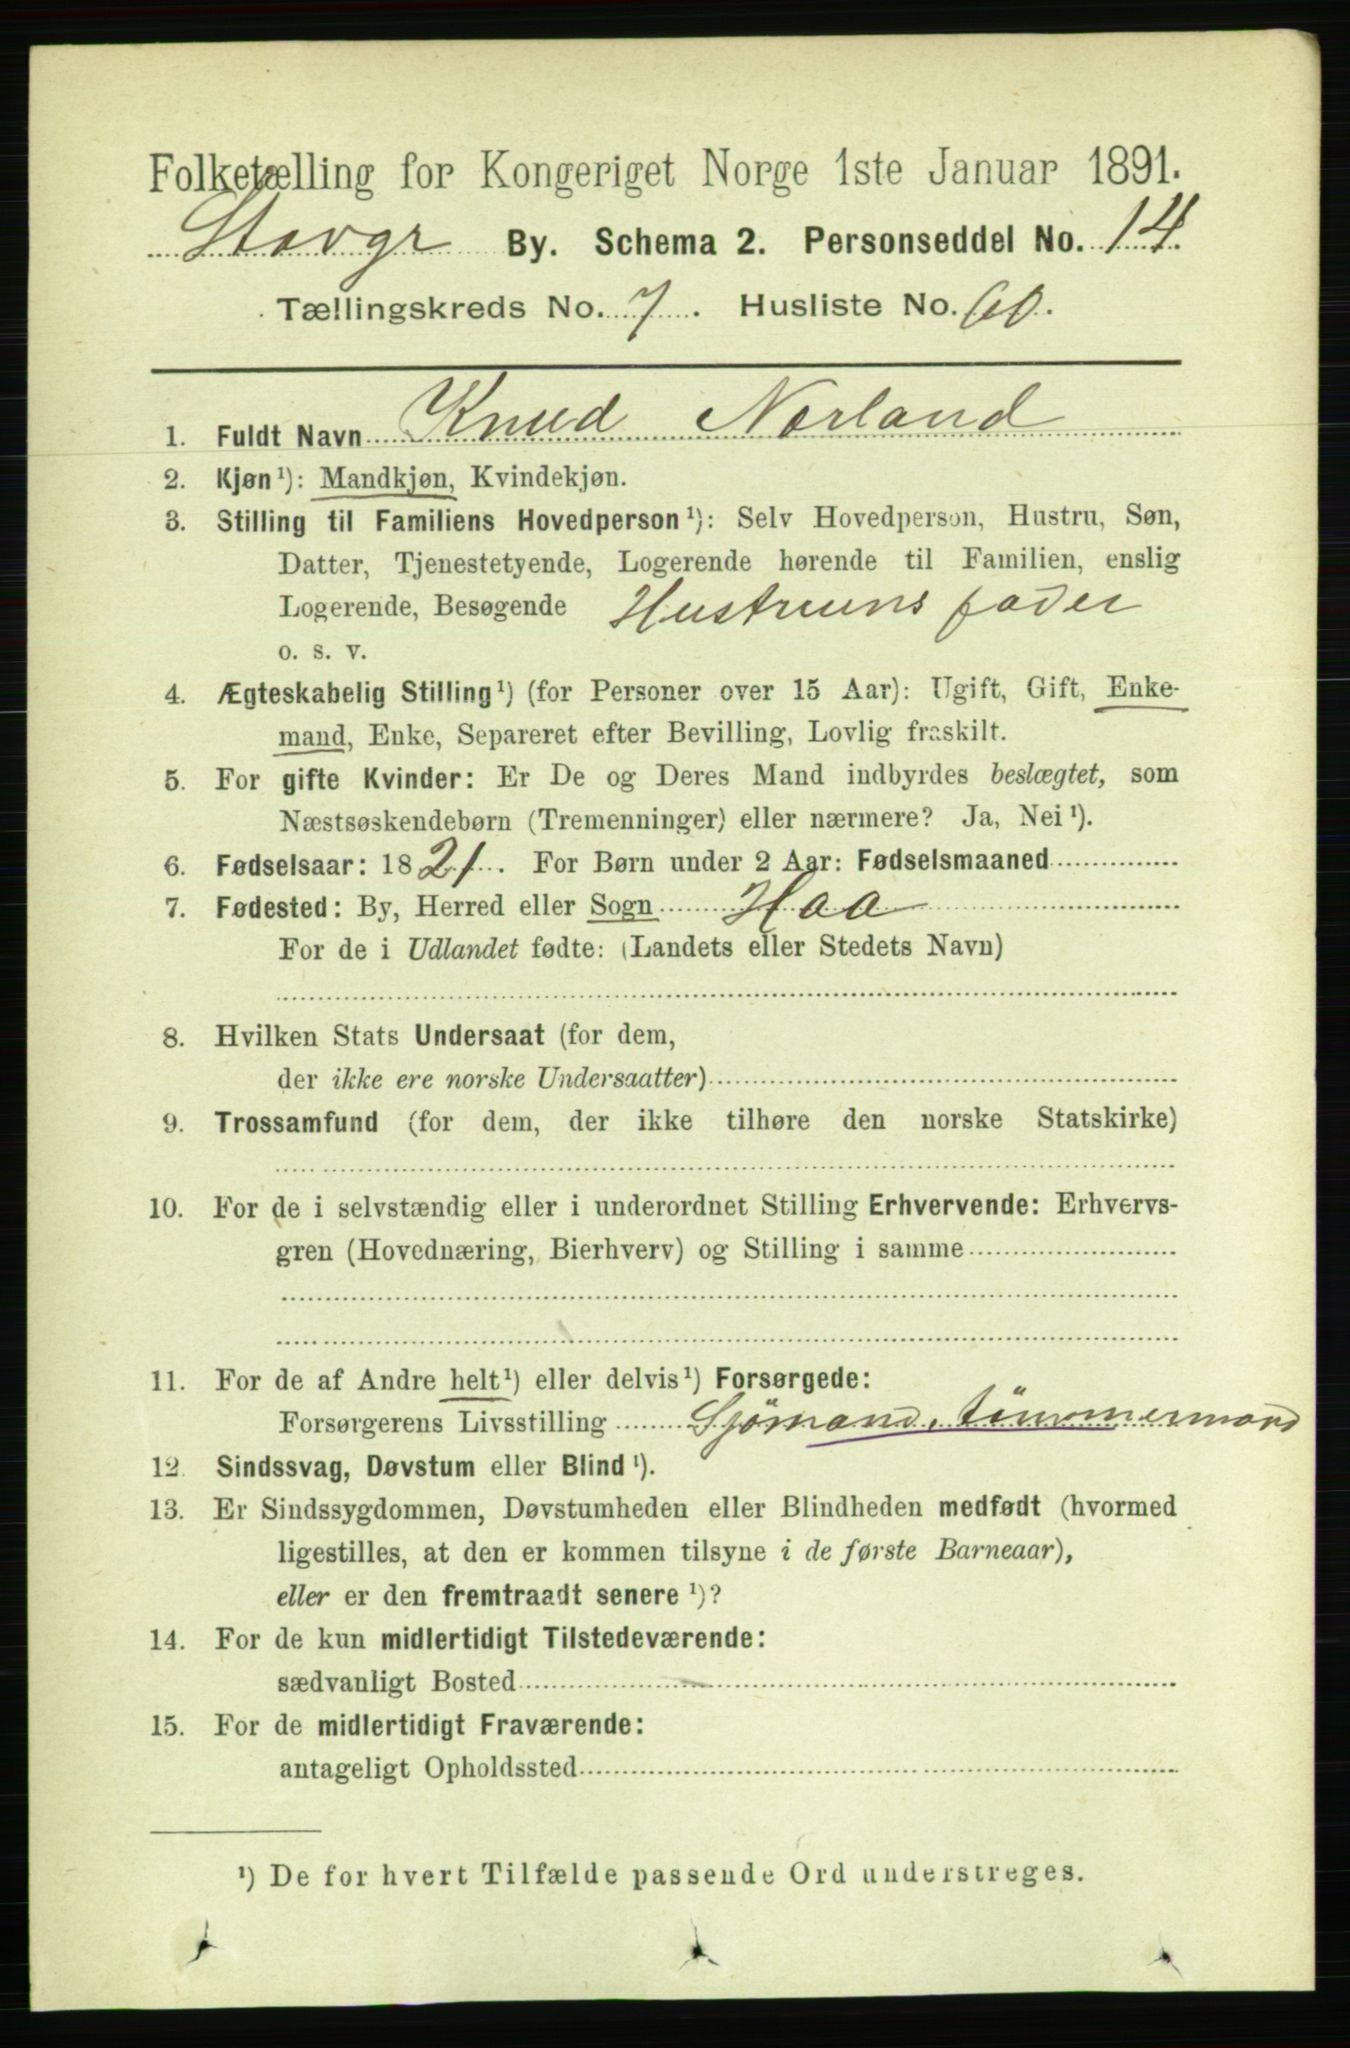 Folketælling for Kongeriget Norge 1ste Januar 1891.
Stavgr By. Schema 2. Personseddel No. 14.
Tællingskreds No. 7. Husliste No. 60.
1. Fuldt Navn Knud Nørland
2. Kjøn¹): Mandkjøn, Kvindekjøn.
3. Stilling til Familiens Hovedperson¹): Selv Hovedperson, Hustru, Søn,
Datter, Tjenestetyende, Logerende hørende til Familien, enslig
Logerende, Besøgende Hustruens fader
o. s. v.
4. Ægteskabelig Stilling¹) (for Personer over 15 Aar): Ugift, Gift, Enke-
mand, Enke, Separeret efter Bevilling, Lovlig fraskilt.
5. For gifte Kvinder: Er De og Deres Mand indbyrdes beslægtet, som
Næstsøskendebørn (Tremenninger) eller nærmere? Ja, Nei¹).
6. Fødselsaar: 1821. For Børn under 2 Aar: Fødselsmaaned
7. Fødested: By, Herred eller Sogn Haa
For de i Udlandet fødte: (Landets eller Stedets Navn)
8. Hvilken Stats Undersaat (for dem,
der ikke ere norske Undersaatter)
9. Trossamfund (for dem, der ikke tilhøre den norske Statskirke)
10. For de i selvstændig eller i underordnet Stilling Erhvervende: Erhvervs-
gren (Hovednæring, Bierhverv) og Stilling i samme
11. For de af Andre helt¹) eller delvis¹) Forsørgede:
Forsørgerens Livsstilling Sjömand, tömmermand
12. Sindssvag, Døvstum eller Blind¹).
13. Er Sindssygdommen, Døvstumheden eller Blindheden medfødt (hvormed
ligestilles, at den er kommen tilsyne i de første Barneaar),
eller er den fremtraadt senere¹)?
14. For de kun midlertidigt Tilstedeværende:
sædvanligt Bosted
15. For de midlertidigt Fraværende:
antageligt Opholdssted
¹) De for hvert Tilfælde passende Ord understreges.